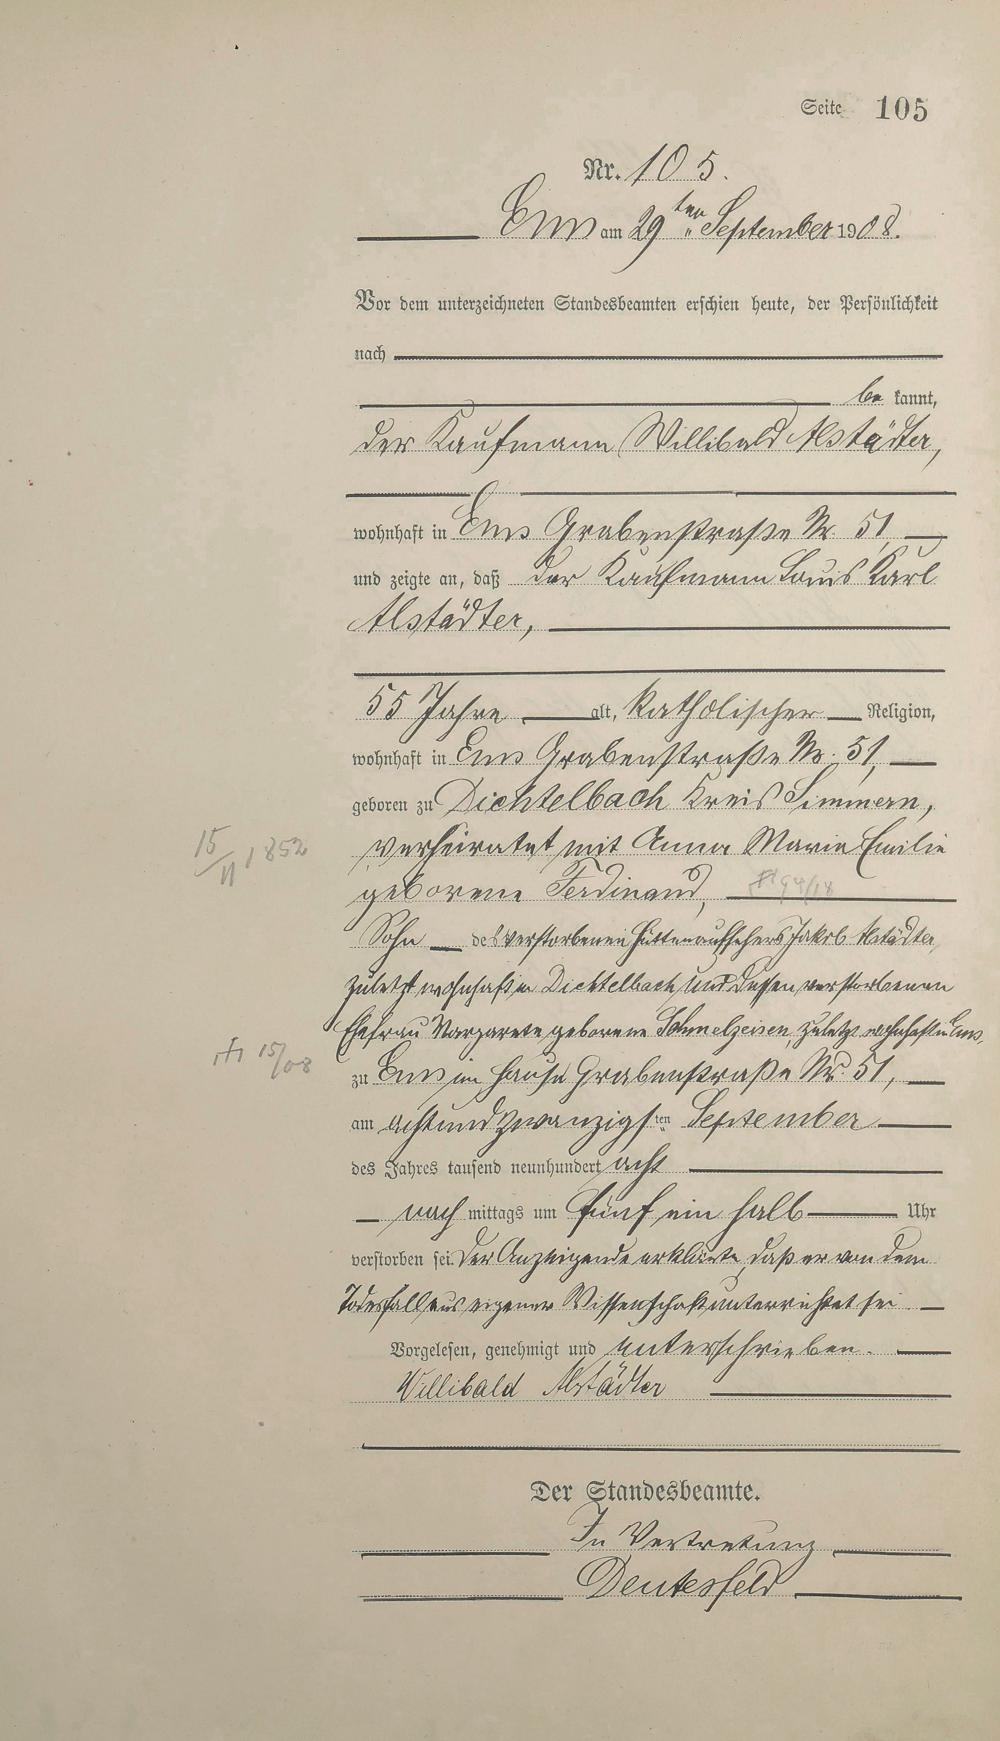 Seite 105
Nr. 105.
Ems am 29ten September 1908.
Vor dem unterzeichneten Standesbeamten erschien heute, der Persönlichkeit
nach
be kannt,
der Kaufmann Willibald Alstädter,
wohnhaft in Ems Grabenstraße Nr. 51,
und zeigte an, daß der Kaufmann Louis Karl
Alstädter,
55 Jahre alt, katholischer Religion,
wohnhaft in Ems Grabenstraße Nr. 51,
geboren zu Dichtelbach Kreis Simmern,
15/11 1852
verheiratet mit Anna Maria Emilie
geborene Ferdinand,
Sohn des verstorbenen Hüttenaufsehers Jakob Alstädter,
zuletzt wohnhaft in Dichtelbach und dessen verstorbenen
Ehefrau Margarete geborene Schmelzeisen, zuletzt wohnhaft in Ems,
15/08
zu Ems im Hause Grabenstraße Nr. 51,
am achtundzwanzigsten September
des Jahres tausend neunhundert acht
nach mittags um fünf ein halb Uhr
verstorben sei. Der Anzeigende erklärte, daß er von dem
Todesfall aus eigener Wissenschaft unterrichtet sei
Vorgelesen, genehmigt und unterschrieben.
Willibald Alstädter
Der Standesbeamte.
In Vertretung
Deutesfeld